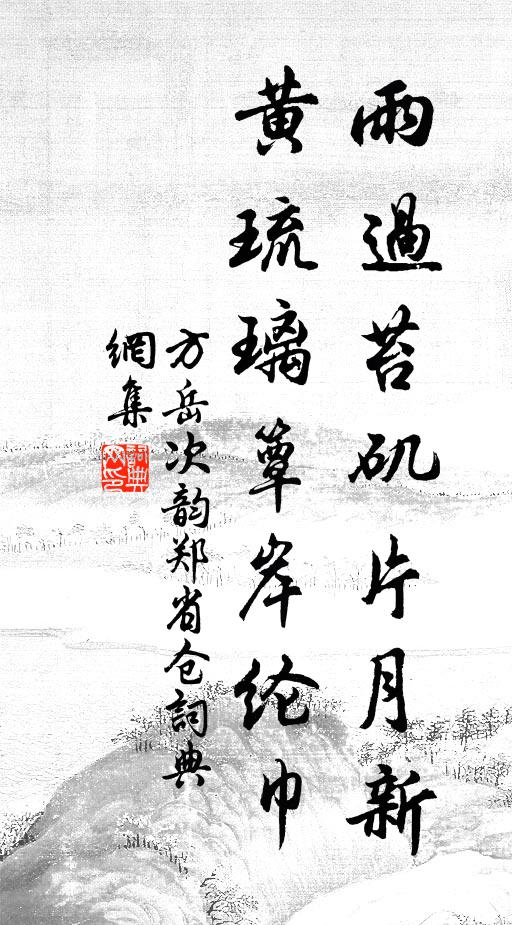 雨過苔矶片月新
黄琉璃簟岸纶巾
方岳次韵郑省仓詞典
網集
詞典
网印